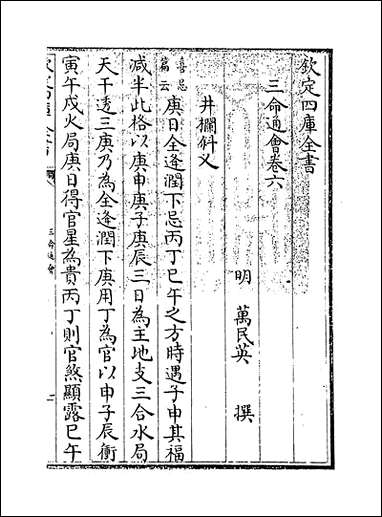 欽定四庫全書
三命通會卷六
明 萬民英 撰
井欄斜叉
喜忌篇云
庚日全逢潤下忌丙丁巳午之方時遇子申其福
減半此格以庚申庚子庚辰三日為主地支三合水局
天干透三庚乃為全逢潤下庚用丁為官以申子辰衝
寅午戌火局庚日得官星為貴丙丁則官煞顯露巳午
三命通會